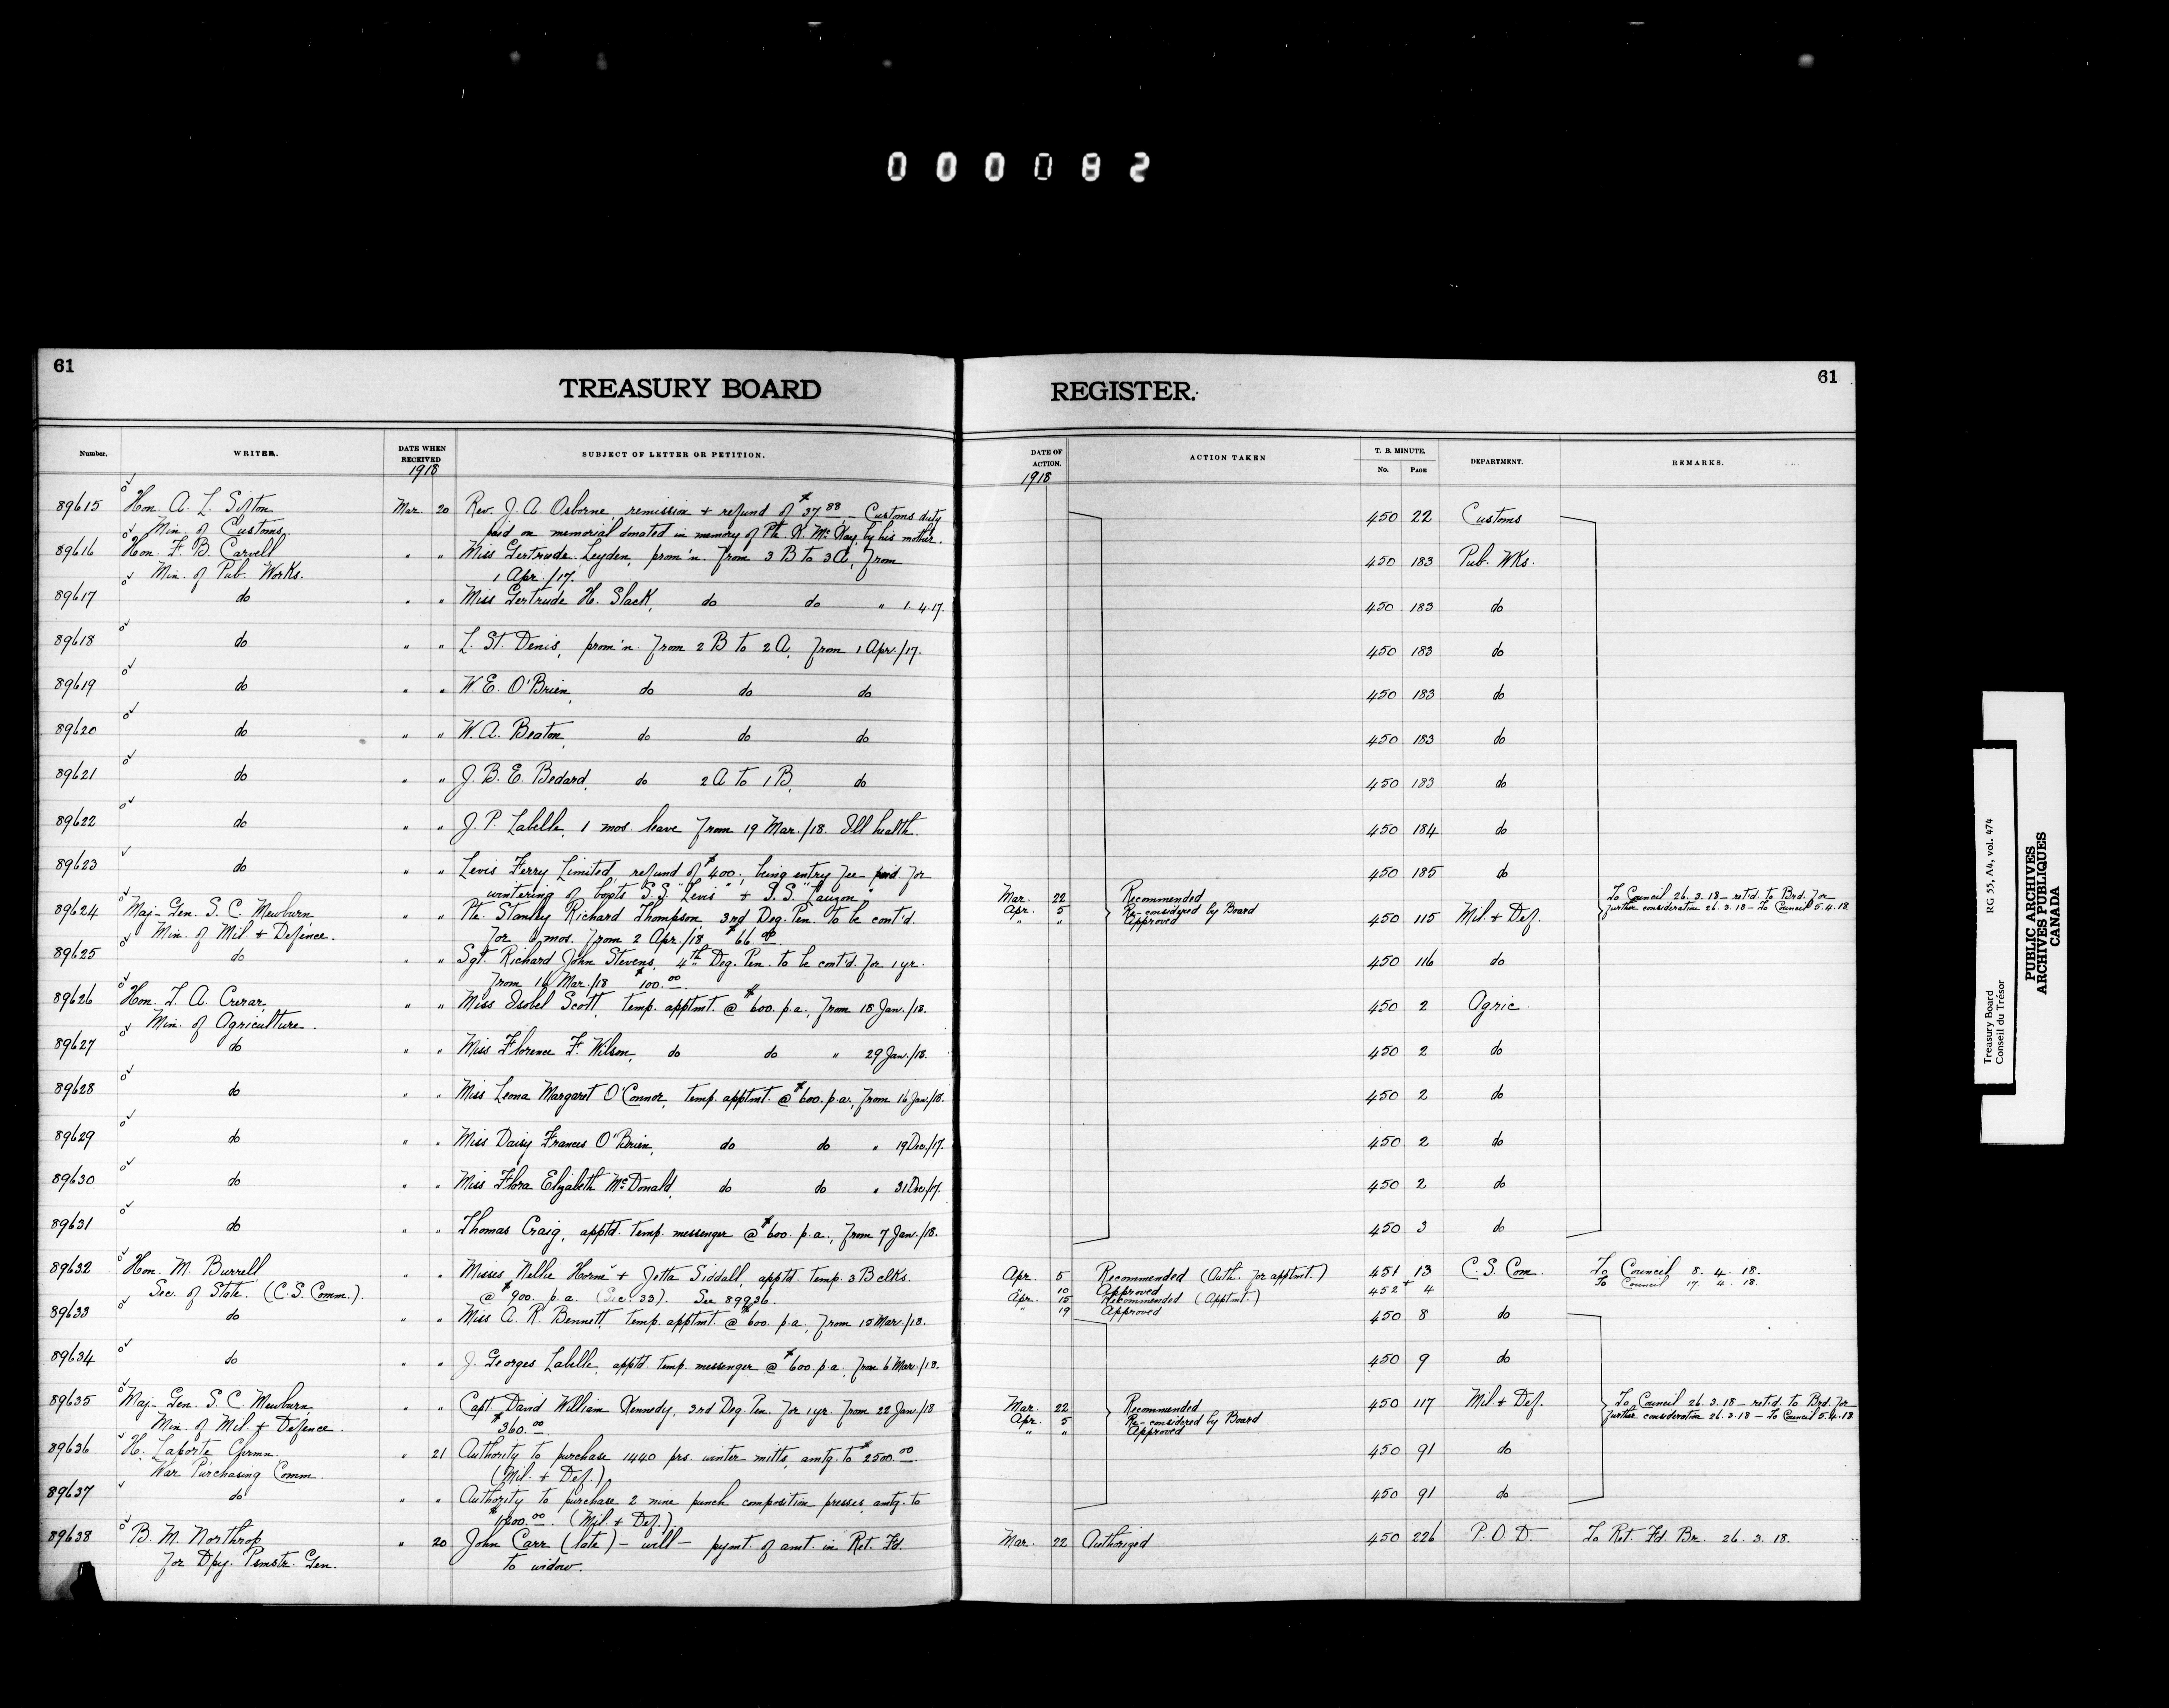 000082
61
TREASURY BOARD
REGISTER.
61
Number.
WRITER.
DATE WHEN RECEIVED
1918
SUBJECT OF LETTER OR PETITION.
DATE OF ACTION.
1918
ACTION TAKEN
T. B. MINUTE.
No. PAGE
DEPARTMENT.
REMARKS.
89615 Hon. A. L. Sifton Mar. 20 Rev. J. A. Osborne, remission + refund of $37.88 - Customs duty 450 22 Customs
Min. of Customs. paid on memorial donated in memory of Pte. K. McKay, by his mother.
89616 Hon. F. B. Carvell " " Miss Gertrude Leyden, prom'n. from 3 B to 3 A, from 450 183 Pub. Wks.
Min. of Pub. Works. 1 Apr./17.
89617 do " " Miss Gertrude H. Slack, do do " 1.4.17. 450 183 do
89618 do " " L. St. Denis, prom'n. from 2 B to 2 A, from 1 Apr./17. 450 183 do
89619 do " " W. E. O'Brien, do do do 450 183 do
89620 do " " W. A. Beaton, do do do 450 183 do
89621 do " " J. B. E. Bedard, do 2 A to 1 B, do 450 183 do
89622 do " " J. P. Labelle, 1 mos. leave from 19 Mar./18. Ill health. 450 184 do
89623 do " " Levis Ferry Limited, refund of $400., being entry fee paid for 450 185 do
wintering of boats "S.S. Levis" + S.S. "Lauzon".
Mar. 22 Recommended
To Council 26.3.18 - ret'd. to Brd. for
89624 Maj-Gen. S. C. Mewburn " " Pte. Stanley Richard Thompson, 3rd Deg. Pen. to be cont'd. Apr. 5 Re-considered by Board 450 115 Mil. + Def. further consideration 26.3.18 - To Council 5.4.18
" " Approved
Min. of Mil. + Defence. for 6 mos. from 2 Apr./18 $66.00
89625 do " " Sgt. Richard John Stevens, 4th Deg. Pen. to be cont'd. for 1 yr. 450 116 do
from 16 Mar./18 $100.00.
89626 Hon. T. A. Crerar " " Miss Isobel Scott, temp. apptmt. @ $600. p.a., from 18 Jan./18. 450 2 Agric.
Min. of Agriculture.
89627 do " " Miss Florence F. Wilson, do do " 29 Jan./18. 450 2 do
89628 do " " Miss Leona Margaret O'Connor, temp. apptmt. @ $600. p.a., from 16 Jan./18. 450 2 do
89629 do " " Miss Daisy Frances O'Brien, do do " 19 Dec./17. 450 2 do
89630 do " " Miss Flora Elizabeth McDonald, do do " 31 Dec./17. 450 2 do
89631 do " " Thomas Craig, apptd. temp. messenger @ $600. p.a., from 7 Jan./18. 450 3 do
89632 Hon. M. Burrell " " Misses Nellie Horne + Jetta Siddall, apptd. temp. 3 B clks. Apr. 5 Recommended (Auth. for apptmt.) 451 13 C. S. Com. To Council 8.4.18.
10 Approved + To Council 17.4.18.
Sec. of State. (C.S. Comm.). @ $900. p.a. (Sec. 33). See 89936. Apr. 15 Recommended (Apptmt.) 452 4
" 19 Approved
89633 do " " Miss A. R. Bennett, temp. apptmt. @ $600. p.a., from 15 Mar./18. 450 8 do
89634 do " " J. Georges Labelle, apptd. temp. messenger @ $600. p.a., from 6 Mar./18. 450 9 do
89635 Maj-Gen. S. C. Mewburn " " Capt. David William Kennedy, 3rd Deg. Pen. for 1 yr. from 22 Jan./18 Mar. 22 Recommended 450 117 Mil. + Def. To Council 26.3.18 - ret'd. to Brd. for
Min. of Mil. + Defence. $360.00. Apr. 5 Re-considered by Board further consideration 26.3.18 - To Council 5.4.18
" " Approved
89636 H. Laporte, Chrmn. " 21 Authority to purchase 1440 prs. winter mitts, amtg. to $2500.00. 450 91 do
War Purchasing Comm. (Mil. + Def.)
89637 do " " Authority to purchase 2 nine punch composition presses, amtg. to 450 91 do
(Mil. + Def.)
89638 B. M. Northrop " 20 John Carr (late) - will - pymt. of amt. in Ret. Fd. Mar. 22 Authorized 450 226 P. O. D. To Ret. Fd. Br. 26.3.18.
for Dpy. Psmstr. Gen. to widow.
Treasury Board RG 55, A4, vol. 474
Conseil du Trésor
PUBLIC ARCHIVES
ARCHIVES PUBLIQUES
CANADA